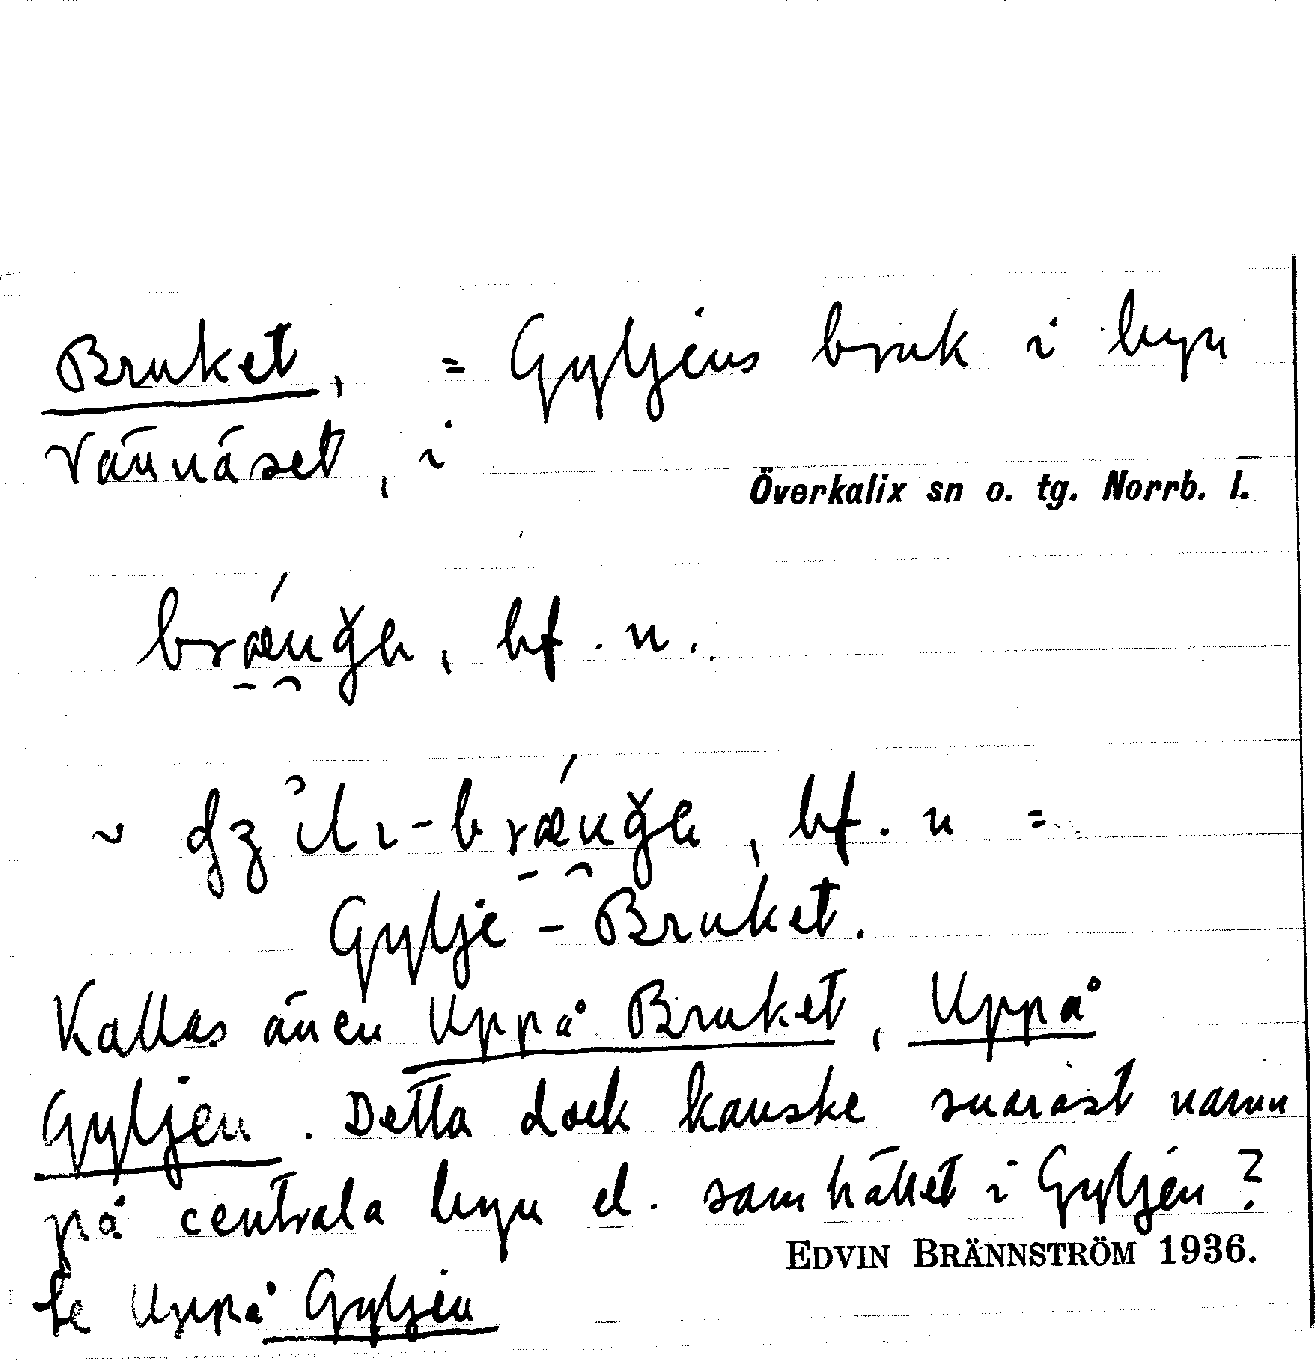 Bruket, = Gyljens bruk i byn
Vännäset, i
Överkalix sn o. tg. Norrb. l.
bf. n.
~ bf. n =
Gylje-Bruket.
Kallas även Uppå Bruket, Uppå
Gyljen. Detta dock kanske snarast namn
på centrala byn el. samhället i Gyljen?
EDVIN BRÄNNSTRÖM 1936.
Se Uppå Gyljen